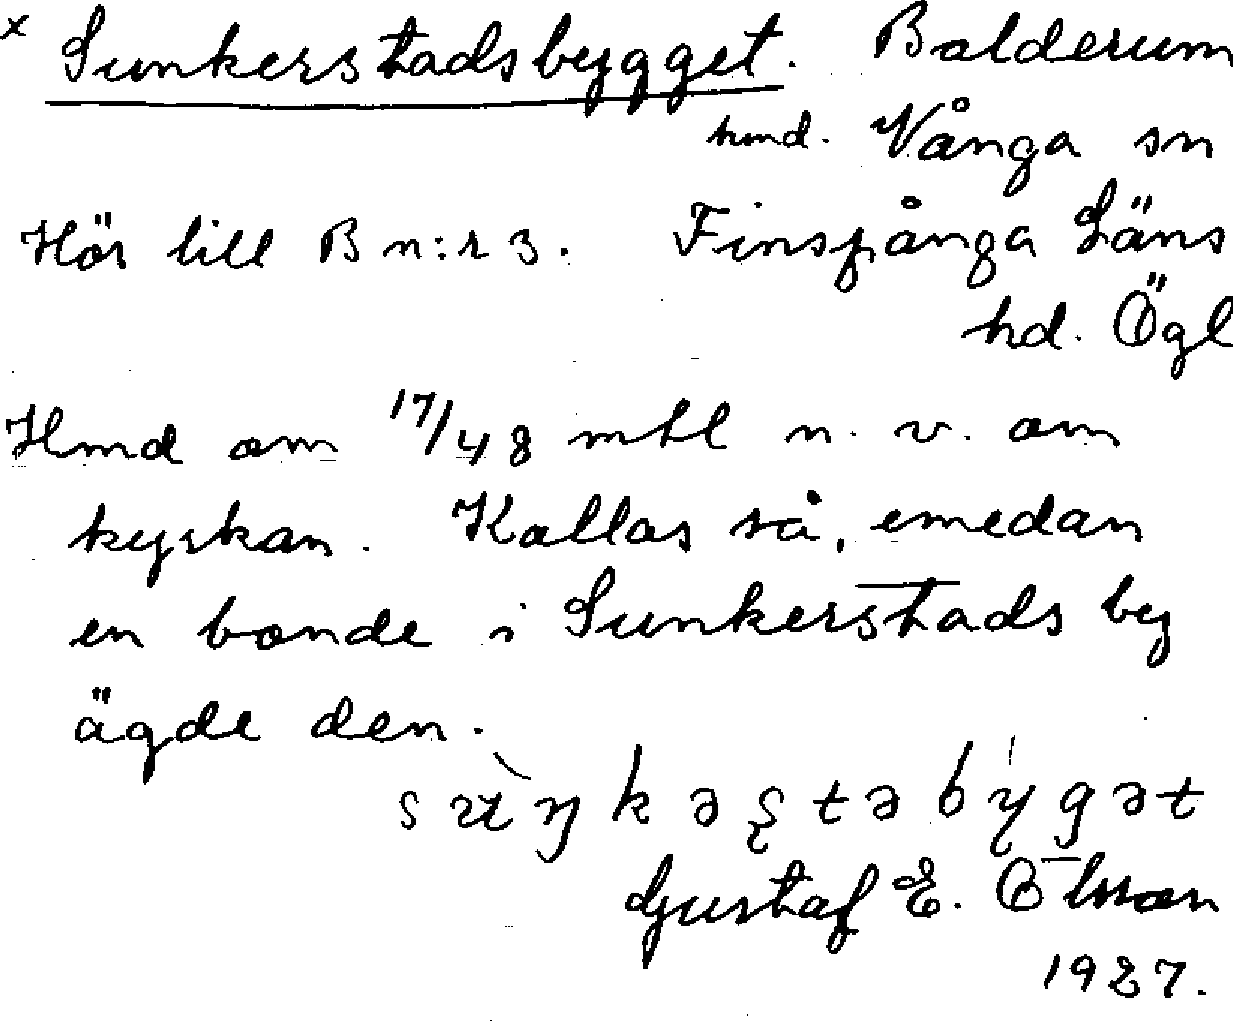 x Sunkerstadsbygget. Balderum
hmd. Vånga sn
Hör till B n:r 3. Finspånga Läns
hd. Ögl
Hmd om 17/48 mtl n. v. om
kyrkan. Kallas så, emedan
en bonde i Sunkerstads by
ägde den.
Gustaf E. Olsson
1927.